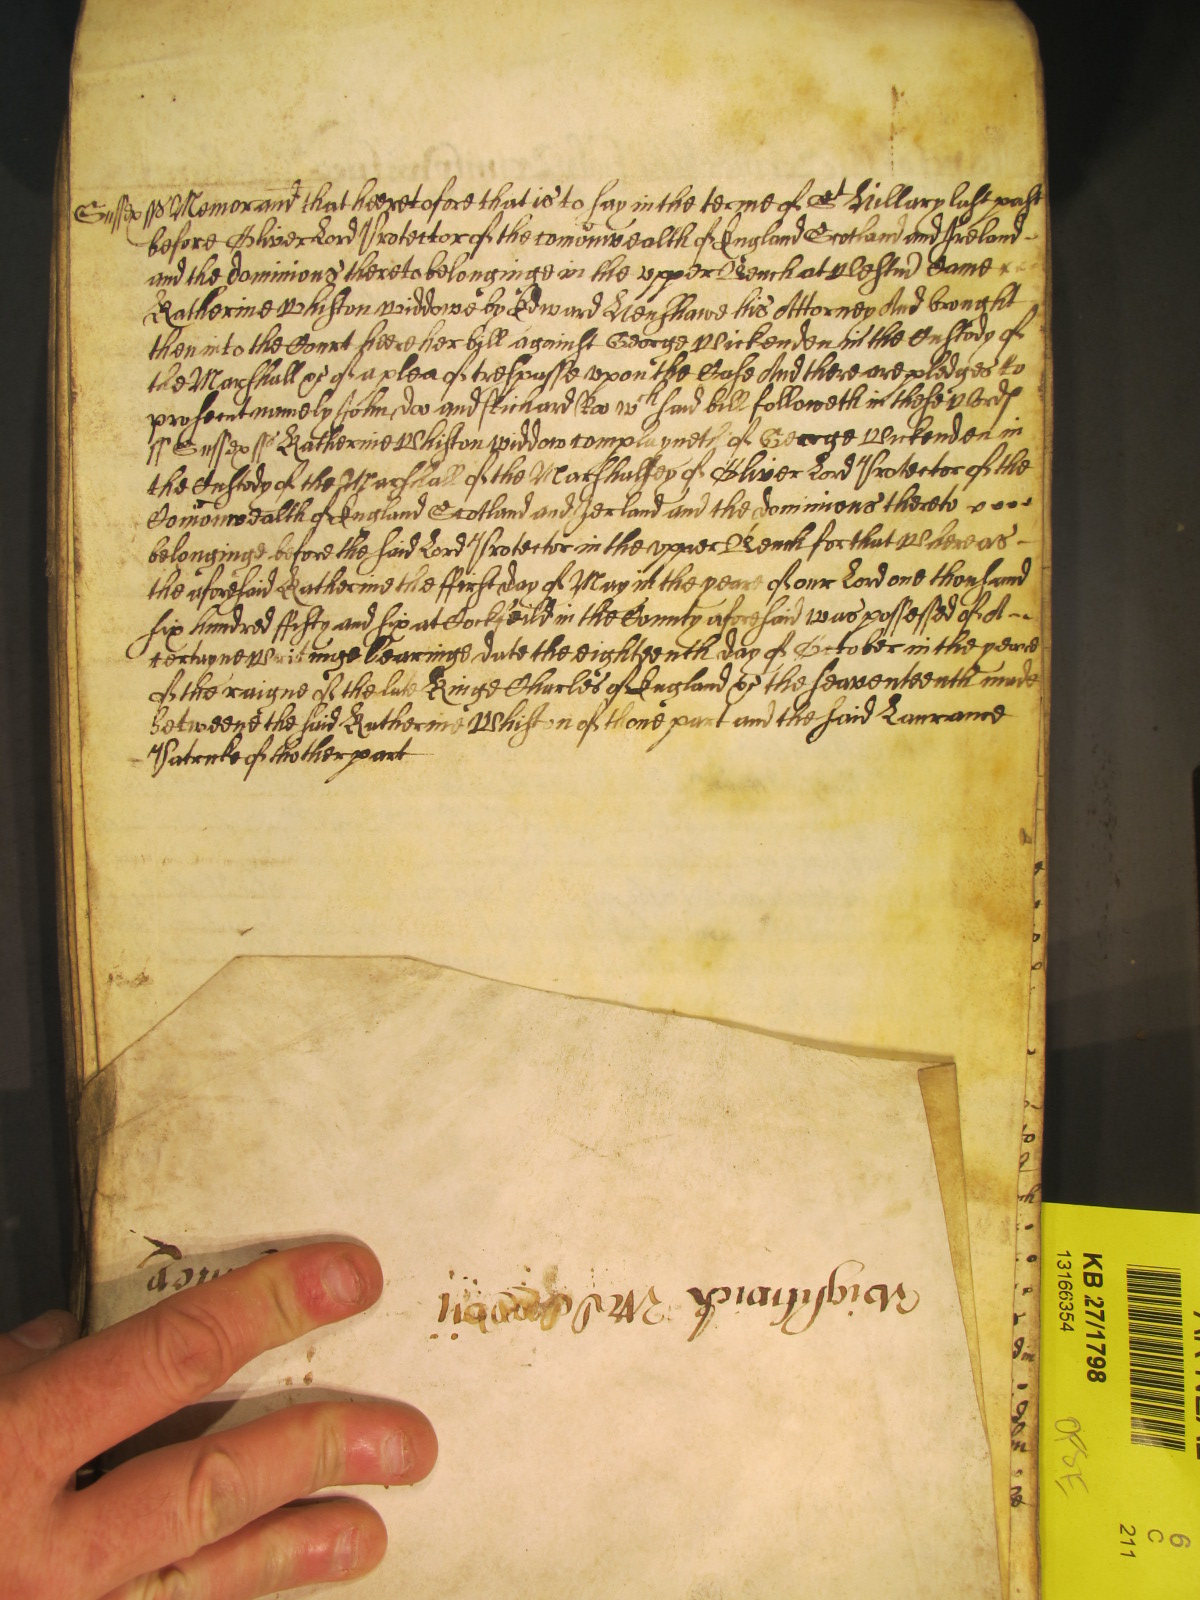 Sussex ss Memorand that heeretofore that is to say in the terme of St Hillary last past
before Oliver Lord Protector of the comonwealth of England Scotland and Ireland
and the dominions thereto belonginge in the upper Bench at Westm Came
Katherine Whiston widdowe by Edward Henshawe his Attorney And brought
then into the Court heere her bill against George Wickenden in the Custody of
the Marshall &c of a plea of trespasse upon the Case And there are pledges to
prosecut namely John doo and Richard Roo wch said bill followeth in these words
ss Sussex ss Katherine Whiston widdow complayneth of George Wickenden in
the Custody of the Marshall of the Marshalsey of Oliver Lord Protector of the
Comonwealth of England Scotland and Ierland and the dominions thereto
belonginge before the said Lord Protector in the upper Bench for that Whereas
the aforesaid Katherine the ffirst day of May in the yeare of our Lord one thousand
six hundred ffifty and six at Cockfeild in the County aforesaid was possessed of A
certayne writinge bearinge date the eighteenth day of October in the yeare
of the raigne of the late Kinge Charles of England &c the seaventeenth made
betweene the said Katherine Whiston of thone part and the said Laurance
Patricke of thother part
Wightwick
KB 27/1798
13166354
6
C
211